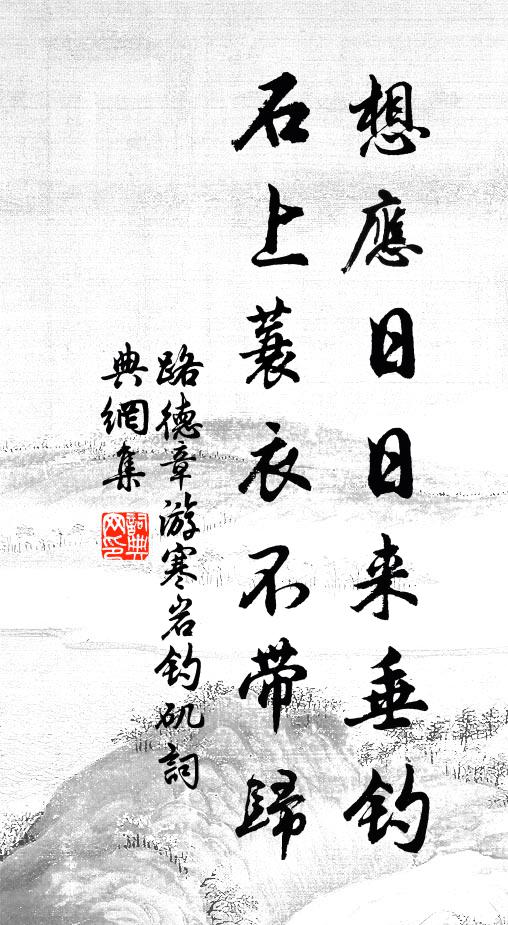 想應日日来垂钓
石上蓑衣不带歸
路德章游寒岩钓矶詞
典網集
詞典网印